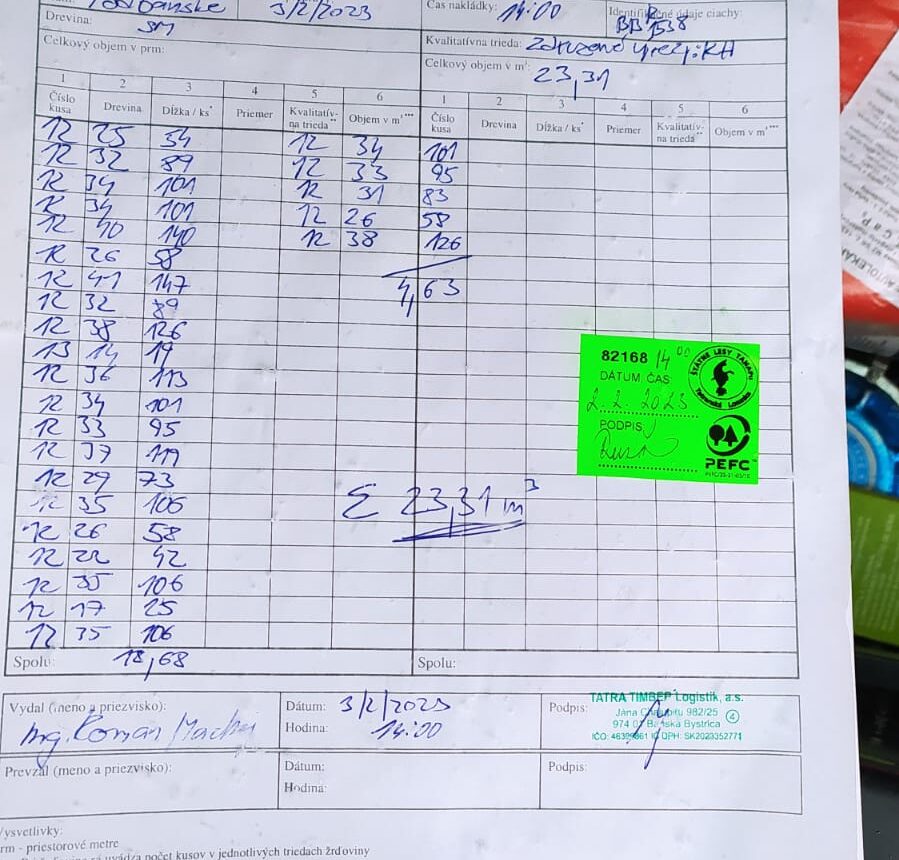 3/2/2023
Čas nakládky: 14:00
Identifikačné údaje ciachy:
Drevina: SM
BB 1538
Kvalitatívna trieda: Združené výrezy: KH
Celkový objem v prm:
Celkový objem v m³: 23,31
1 2 3 4 5 6 1 2 3 4 5 6
Číslo kusa Drevina Dĺžka / ks* Priemer Kvalitatív- na trieda** Objem v m³*** Číslo kusa Drevina Dĺžka / ks* Priemer Kvalitatív- na trieda** Objem v m³***
12 25 54 12 34 101
12 32 89 12 33 95
12 34 101 12 31 83
12 34 101 12 26 58
12 40 140 12 38 126
12 26 58
12 41 147 4,63
12 32 89
12 38 126
13 14 19
12 36 113
12 34 101
12 33 95
12 37 119
12 29 73
12 35 106
Σ 23,31 m³
12 26 58
12 22 42
12 35 106
12 17 25
12 35 106
Spolu: 18,68 Spolu:
82168 14 00
DÁTUM, ČAS
2.2.2023
PODPIS
ŠTÁTNE LESY TANAPU
Tatranská Lomnica
PEFC
Vydal (meno a priezvisko):
Ing. Roman
Dátum: 3/2/2023
Hodina: 14:00
Podpis:
TATRA TIMBER Logistik, a.s.
982/25
974 01 Banská Bystrica
4
DPH: SK2023352771
Prevzal (meno a priezvisko):
Dátum:
Hodina:
Podpis:
Vysvetlivky:
prm - priestorové metre
uvádza počet kusov v jednotlivých triedach žrďoviny